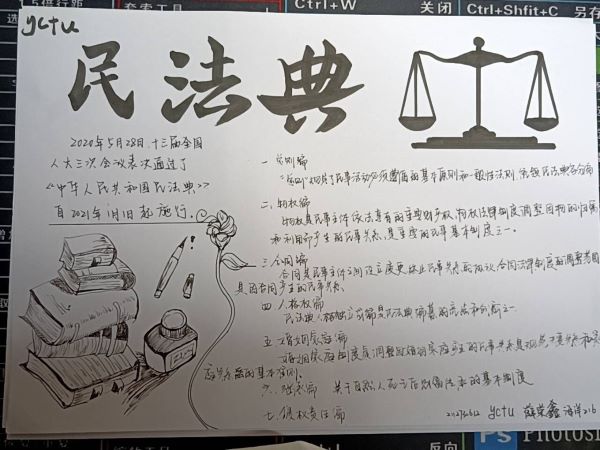 5倍行距
套索工具
Ctrl+W
关闭
Ctrl+Shfit+C
另存
yctu
民法典
2020年5月28日,十三届全国
人大三次会议表决通过了
《中华人民共和国民法典》
自2021年1月1日起施行.
一 总则编
"总则"规定了民事活动必须遵循的基本原则和一般性法则,统领民法典各分编
二.物权编
物权是民事主体依法享有的重要财产权,物权法律制度调整因物的归属
和利用而产生的民事关系,是重要的民事基本制度之一.
三.合同编
合同是民事主体之间设立变更终止民事关系的协议,合同法律制度的调整
是因合同产生的民事关系
四.人格权编
民法典人格独立成编是民法典编纂的
五.婚姻家庭编
婚姻家庭制度是调整因婚姻家庭产生的民事关系
的基本准则.
六.继承编 关于自然人死亡后财富传承的基本制度
七.侵权责任编
yctu
海洋216
反向
Ps